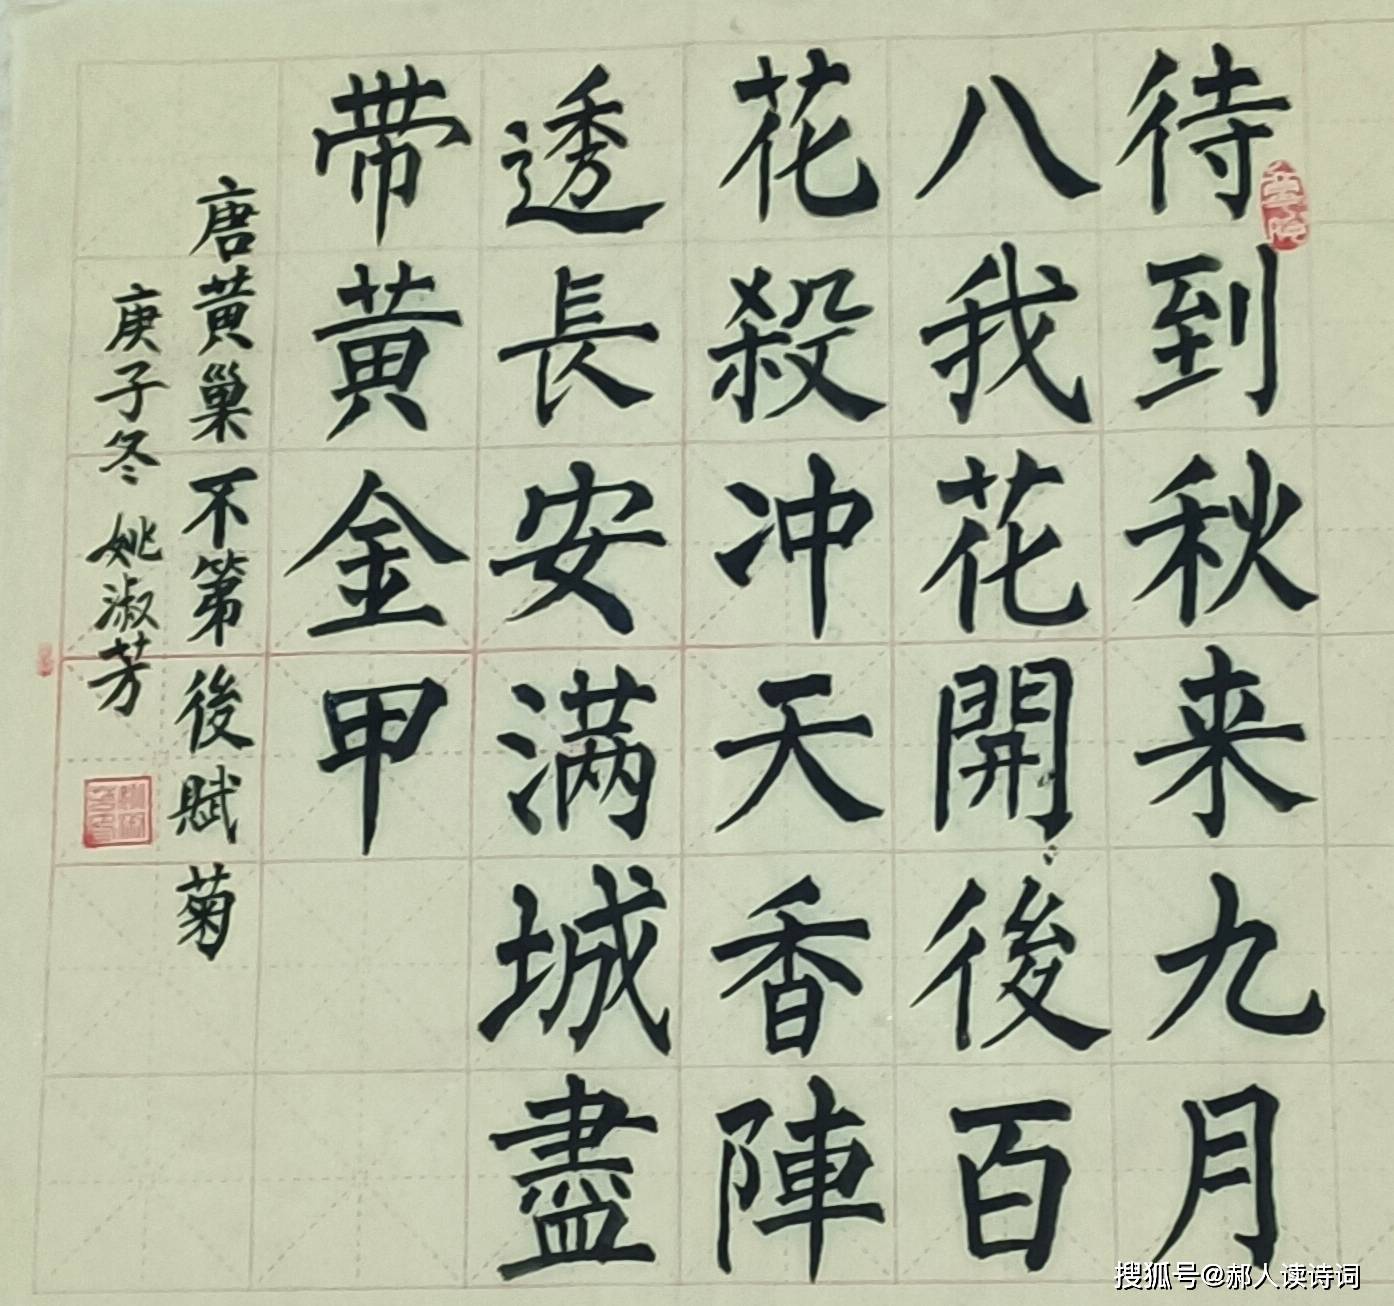 待到秋来九月
八我花開後百
花殺冲天香陣
透長安满城盡
带黄金甲
唐黄巢不第後賦菊
庚子冬姚淑芳
搜狐号@郝人读诗词